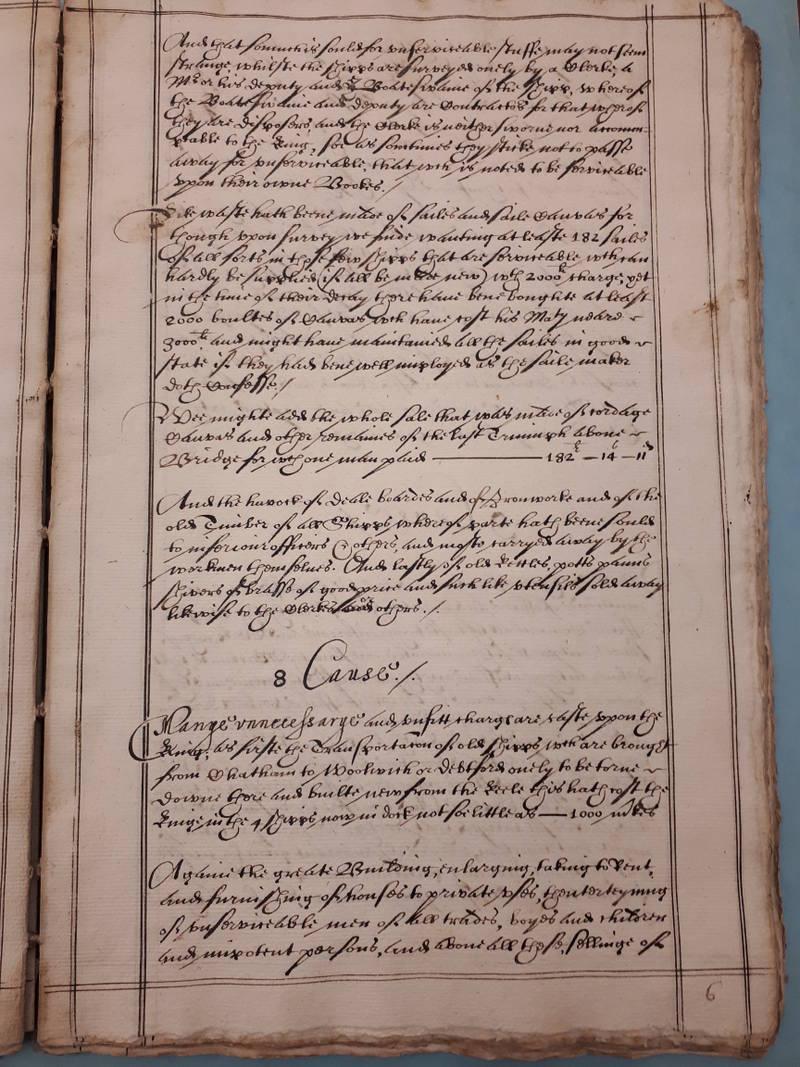 And that so much is sould for unserviceable stuffe may not seem
strange, whilste the shipps are surveyed onely by a Clerke, a
Mr or his deputy and ye Boateswaine of the Shipp, whereof
the Boateswaine and deputy are Contractors for that wherof
they are disposers, and the Clerke is neither sworne nor accomp-
table to the King, soe as somtimes they sticke not to passe
away for unserviceable, that wch is noted to be serviceable
upon their owne Bookes./
Like waste hath beene made of sailes and saile Canvas for
though upon survey we finde wanting at leaste 182 sailes
of all sorts in those few shipps that are serviceable wch can
hardly be supplied (if all be made new) wth 2000li charge, yet
in the time of their decay there have bene boughte at least
2000 boultes of Canvas wch have cost his Maty neare
3000li and might have maintained all the sailes in good
state if they had bene well imployed as the saile maker
doth Confesse./
Wee mighte add the whole sale that was made of cordage
Canvas and other remaines of the last Triumph above
Bridge for wch one man paid — 182li — 14s — 11d
And the havock of deale boardes and of Ironworke and of the
old Timber of all Shipps whereof parte hath beene sould
to inferiour officers & others, and moste carryed away by the
workmen themselves. And lastly of old kettles, potts panns
shivers of brasse of good price and such like utensils sold away
likewise to the Clerkes and others./
8 Cause./
Manye unnecessarye and unfitt charge are caste upon the
King, as firste the Transportation of old shipps, wch are brought
from Chatham to Woolwich or Debtford onely to be torne
downe there and builte new from the keele this hath cost the
Kinge in the 4 shipps now in dock not soe little as — 1000 mrkes
Againe the greate Building, enlarging, taking to Rent,
and furnishing of houses to private uses, th'enterteyning
of unserviceable men of all trades, boyes and children
and impotent persons, and above all these, sellinge of
6